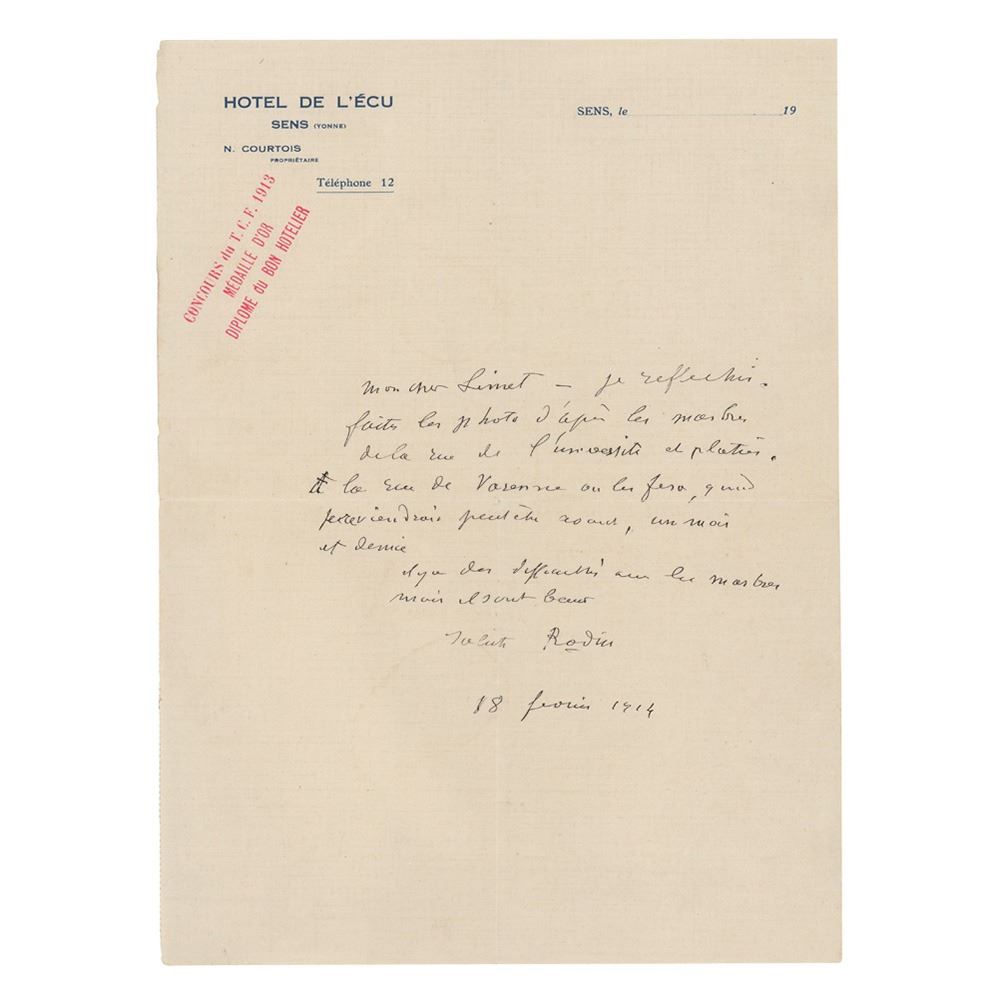 HOTEL DE L'ÉCU
SENS (YONNE)
N. COURTOIS
PROPRIÉTAIRE
Téléphone 12
SENS, le 19
CONCOURS du T. C. F. 1913
MÉDAILLE D'OR
DIPLOME du BON HOTELIER
mon cher Limet — je reflechis.
faites les photo d'après les marbres
de la rue de l'université et platres.
A la rue de Varenne on les fera, quand
je reviendrais peut être avant, un mois
et demie
il y a des difficultés avec les marbres
mais ils sont beaux
Rodin
18 fevrier 1914